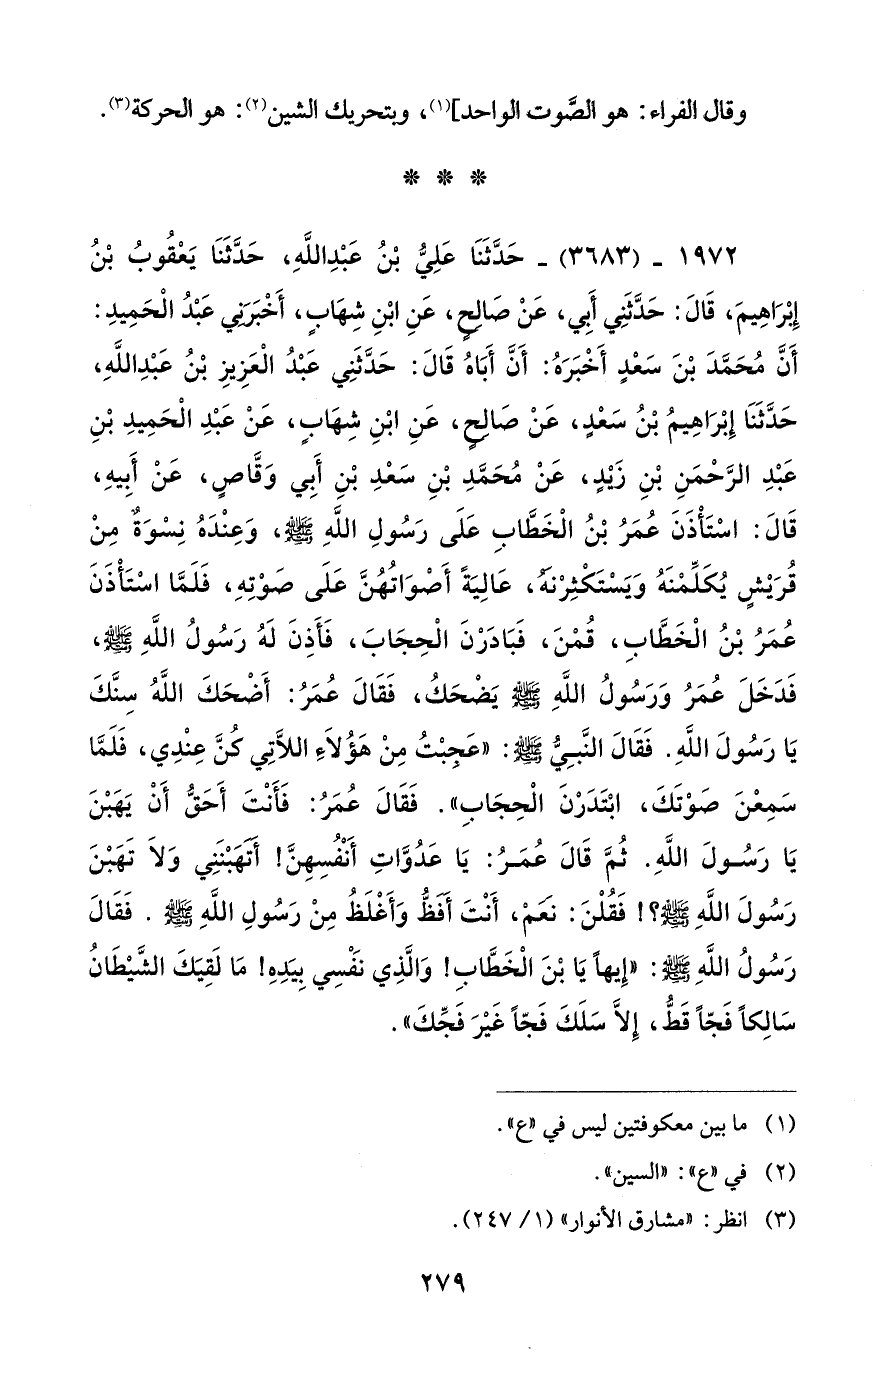 وقال الفراء: هو الصَّوت الواحد](١)، وبتحريك الشين(٢): هو الحركة(٣).
* * *
١٩٧٢ - (٣٦٨٣) - حَدَّثَنَا عَلِيُّ بْنُ عَبْدِاللَّهِ، حَدَّثَنَا يَعْقُوبُ بْنُ
إِبْرَاهِيمَ، قَالَ: حَدَّثَنِي أَبِي، عَنْ صَالِحٍ، عَنِ ابْنِ شِهَابٍ، أَخْبَرَنِي عَبْدُ الْحَمِيدِ:
أَنَّ مُحَمَّدَ بْنَ سَعْدٍ أَخْبَرَهُ: أَنَّ أَبَاهُ قَالَ: حَدَّثَنِي عَبْدُ الْعَزِيزِ بْنُ عَبْدِاللَّهِ،
حَدَّثَنَا إِبْرَاهِيمُ بْنُ سَعْدٍ، عَنْ صَالِحٍ، عَنِ ابْنِ شِهَابٍ، عَنْ عَبْدِ الْحَمِيدِ بْنِ
عَبْدِ الرَّحْمَنِ بْنِ زَيْدٍ، عَنْ مُحَمَّدِ بْنِ سَعْدِ بْنِ أَبِي وَقَّاصٍ، عَنْ أَبِيهِ،
قَالَ: اسْتَأْذَنَ عُمَرُ بْنُ الْخَطَّابِ عَلَى رَسُولِ اللَّهِ ﷺ، وَعِنْدَهُ نِسْوَةٌ مِنْ
قُرَيْشٍ يُكَلِّمْنَهُ وَيَسْتَكْثِرْنَهُ، عَالِيَةً أَصْوَاتُهُنَّ عَلَى صَوْتِهِ، فَلَمَّا اسْتَأْذَنَ
عُمَرُ بْنُ الْخَطَّابِ، قُمْنَ، فَبَادَرْنَ الْحِجَابَ، فَأَذِنَ لَهُ رَسُولُ اللَّهِ ﷺ،
فَدَخَلَ عُمَرُ وَرَسُولُ اللَّهِ ﷺ يَضْحَكُ، فَقَالَ عُمَرُ: أَضْحَكَ اللَّهُ سِنَّكَ
يَا رَسُولَ اللَّهِ. فَقَالَ النَّبِيُّ ﷺ: «عَجِبْتُ مِنْ هَؤُلاَءِ اللاَّتِي كُنَّ عِنْدِي، فَلَمَّا
سَمِعْنَ صَوْتَكَ، ابْتَدَرْنَ الْحِجَابِ». فَقَالَ عُمَرُ: فَأَنْتَ أَحَقُّ أَنْ يَهَبْنَ
يَا رَسُولَ اللَّهِ. ثُمَّ قَالَ عُمَرُ: يَا عَدُوَّاتِ أَنْفُسِهِنَّ! أَتَهَبْنَنِي وَلاَ تَهَبْنَ
رَسُولَ اللَّهِ ﷺ؟! فَقُلْنَ: نَعَمْ، أَنْتَ أَفَظُّ وَأَغْلَظُ مِنْ رَسُولِ اللَّهِ ﷺ. فَقَالَ
رَسُولُ اللَّهِ ﷺ: «إِيهاً يَا بْنَ الْخَطَّابِ! وَالَّذِي نَفْسِي بِيَدِهِ! مَا لَقِيَكَ الشَّيْطَانُ
سَالِكاً فَجّاً قَطُّ، إِلاَّ سَلَكَ فَجّاً غَيْرَ فَجِّكَ».
(١) ما بين معكوفتين ليس في «ع».
(٢) في «ع»: «السين».
(٣) انظر: «مشارق الأنوار» (١/ ٢٤٧).
٢٧٩